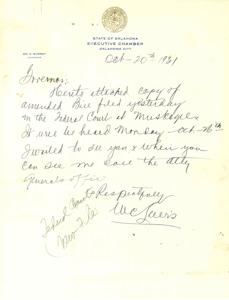 STATE OF OKLAHOMA
EXECUTIVE CHAMBER
OKLAHOMA CITY
WM. H. MURRAY
GOVERNOR
Oct-20th 1931
Governor:
Hereto attached copy of
amended Bill filed yesterday
in the Federal Court at Muskogee
It will be heard Monday Oct-26th
I would to see you & when you
can see me call the Atty
Generals office
Respectfully
Federal Court